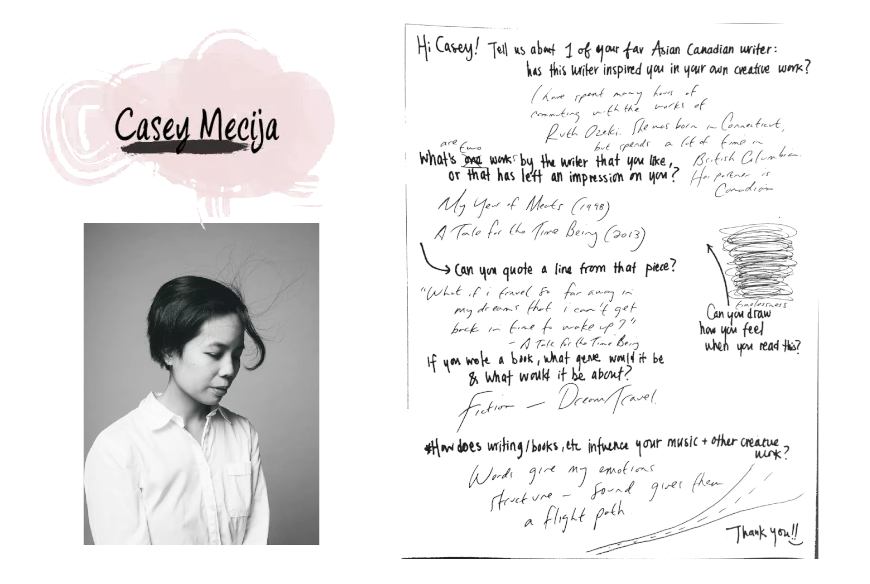 Casey Mecija
Hi Casey! Tell us about 1 of your fav Asian Canadian writer:
has this writer inspired you in your own creative work?
I have spent many hours of
commuting with the works of
Ruth Ozeki. She was born in Connecticut,
but spends a lot of time in
British Columbia.
Her partner is
Canadian
are two
What's one works by the writer that you like,
or that has left an impression on you?
My Year of Meats (1998)
A Tale for the Time Being (2013)
Can you quote a line from that piece?
"What if i travel so far away in
my dreams that i can't get
back in time to wake up?"
- A Tale for the Time Being
timelessness
Can you draw
how you feel
when you read this?
If you wrote a book, what genre would it be
& what would it be about?
Fiction — Dream/Travel.
*How does writing/books, etc influence your music + other creative
work?
Words give my emotions
structure – sound gives them
a flight path.
Thank you!!